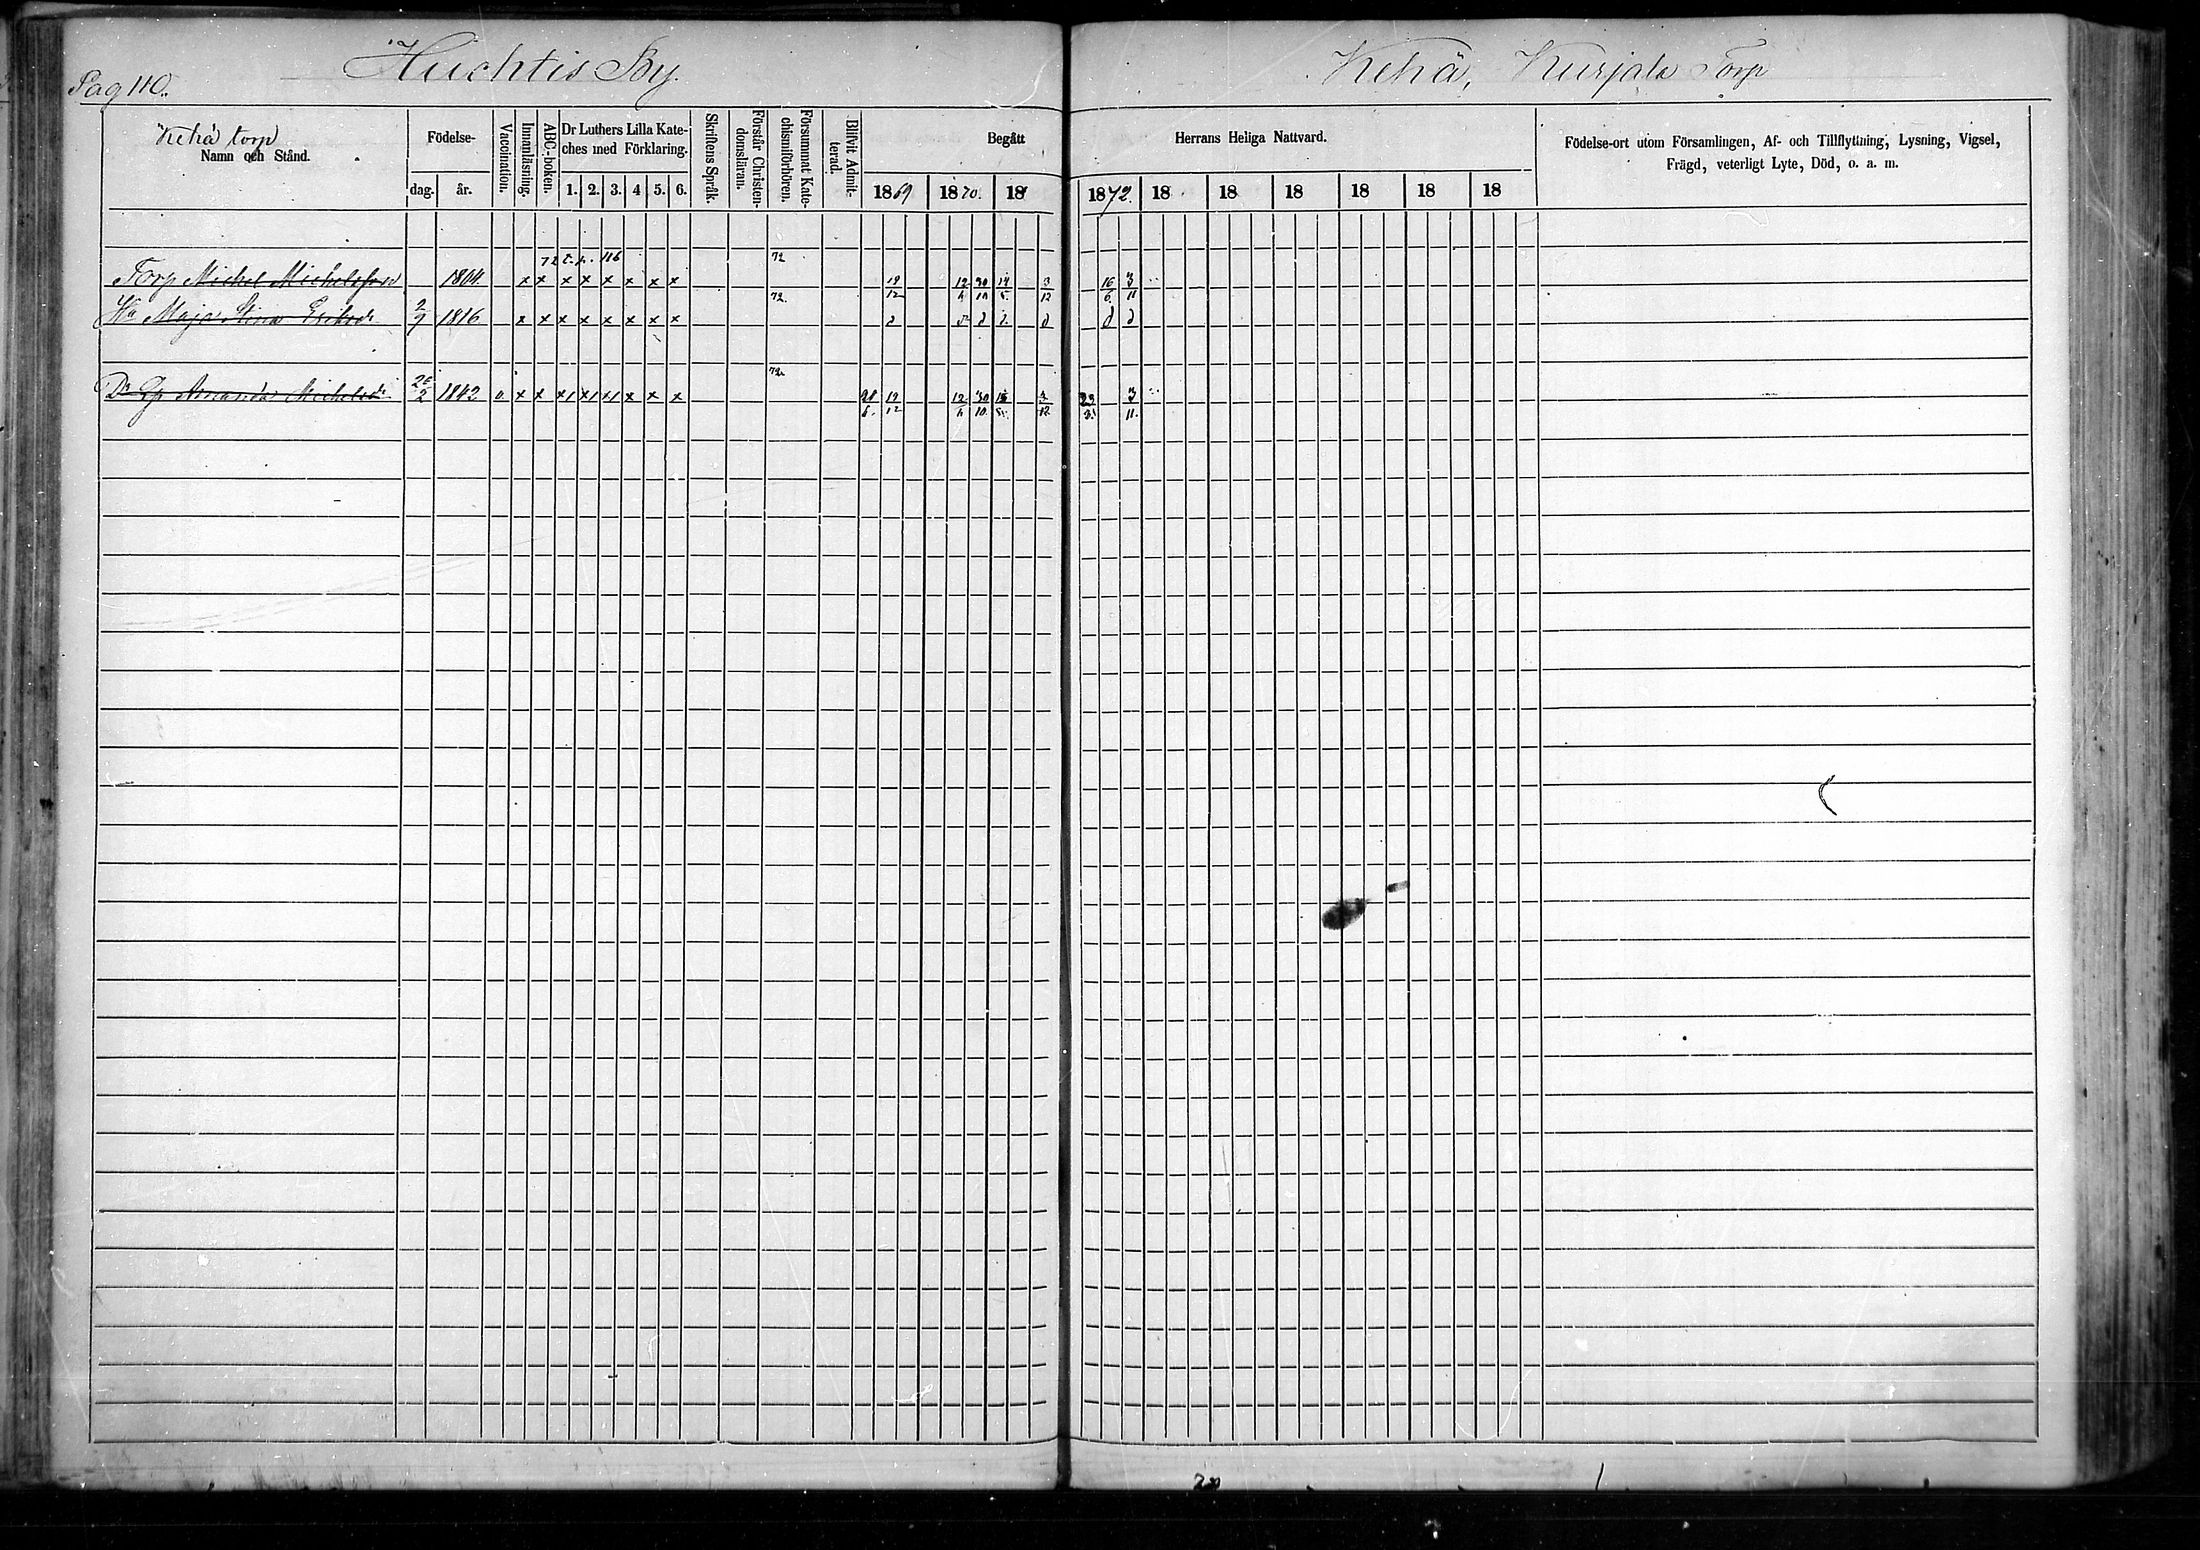 Pag 110.
Huchtis By.
Kehä, Kurjala Torp
Kehä torp
Namn och Stånd.
Födelse-
dag.
år.
Vaccination.
Innanläsning.
ABC-boken.
Dr Luthers Lilla Kate-
ches med Förklaring.
1. 2. 3. 4 5. 6.
Skriftens Språk.
Förstår Christen-
domsläran.
Försummat Kate-
chismiförhören.
Blifvit Admit-
terad.
Begått
Herrans Heliga Nattvard.
1869 1870. 18
1872. 18 18 18 18 18 18
Födelse-ort utom Församlingen, Af- och Tillflyttning, Lysning, Vigsel,
Frägd, veterligt Lyte, Död, o. a. m.
72 116 72
Torp Michel Michelsson 1804 x x x x x x x x 19/12 12/4 30/10 14/5 3/12 16/6 3/11
72
Hu Maja Stina Eriksdr 2/9 1816 x x x x x x x x
72
Dr Amanda Michelsdr 1842 v. x x x1 x1 x1 x x x 19/12 12/4 30/10 3/12 23/3 3/11